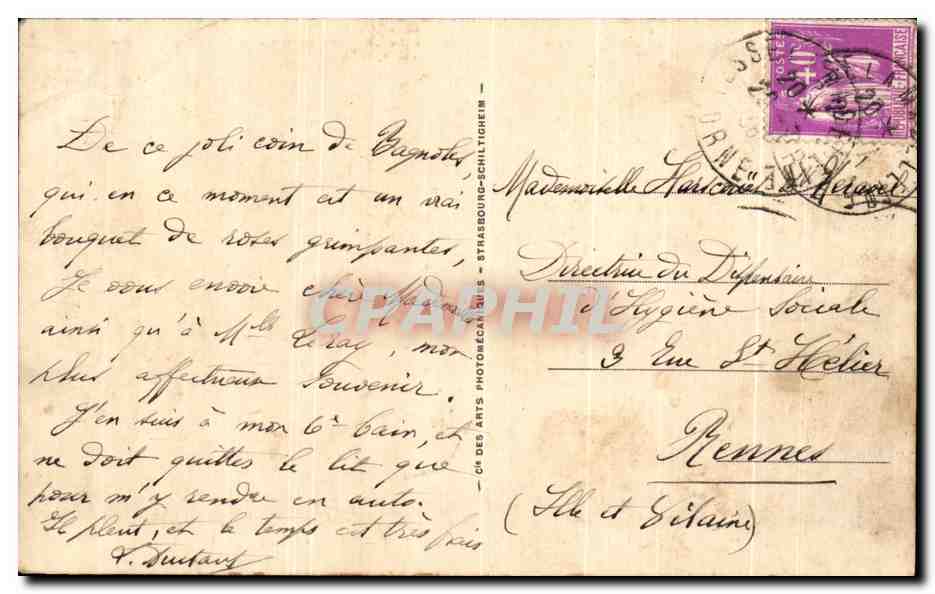 De ce joli coin de Bagnoles,
qui en ce moment est un vrai
bouquet de roses grimpantes,
Je vous envoie chère Mademoiselle
ainsi qu'à Mlle Leray, mon
plus affectueux Souvenir.
J'en suis à mon 6e bain, et
ne doit quitter le lit que
pour m'y rendre en auto.
Il pleut, et le temps est très frais
Cie DES ARTS PHOTOMÉCANIQUES - STRASBOURG-SCHILTIGHEIM
POSTES
40c
RÉPUBLIQUE FRANÇAISE
ORNE
Mademoiselle
Directrice du Dispensaire
d'Hygiène Sociale
3 Rue St Hélier
Rennes
(Ille et Vilaine)
CPAPHIL